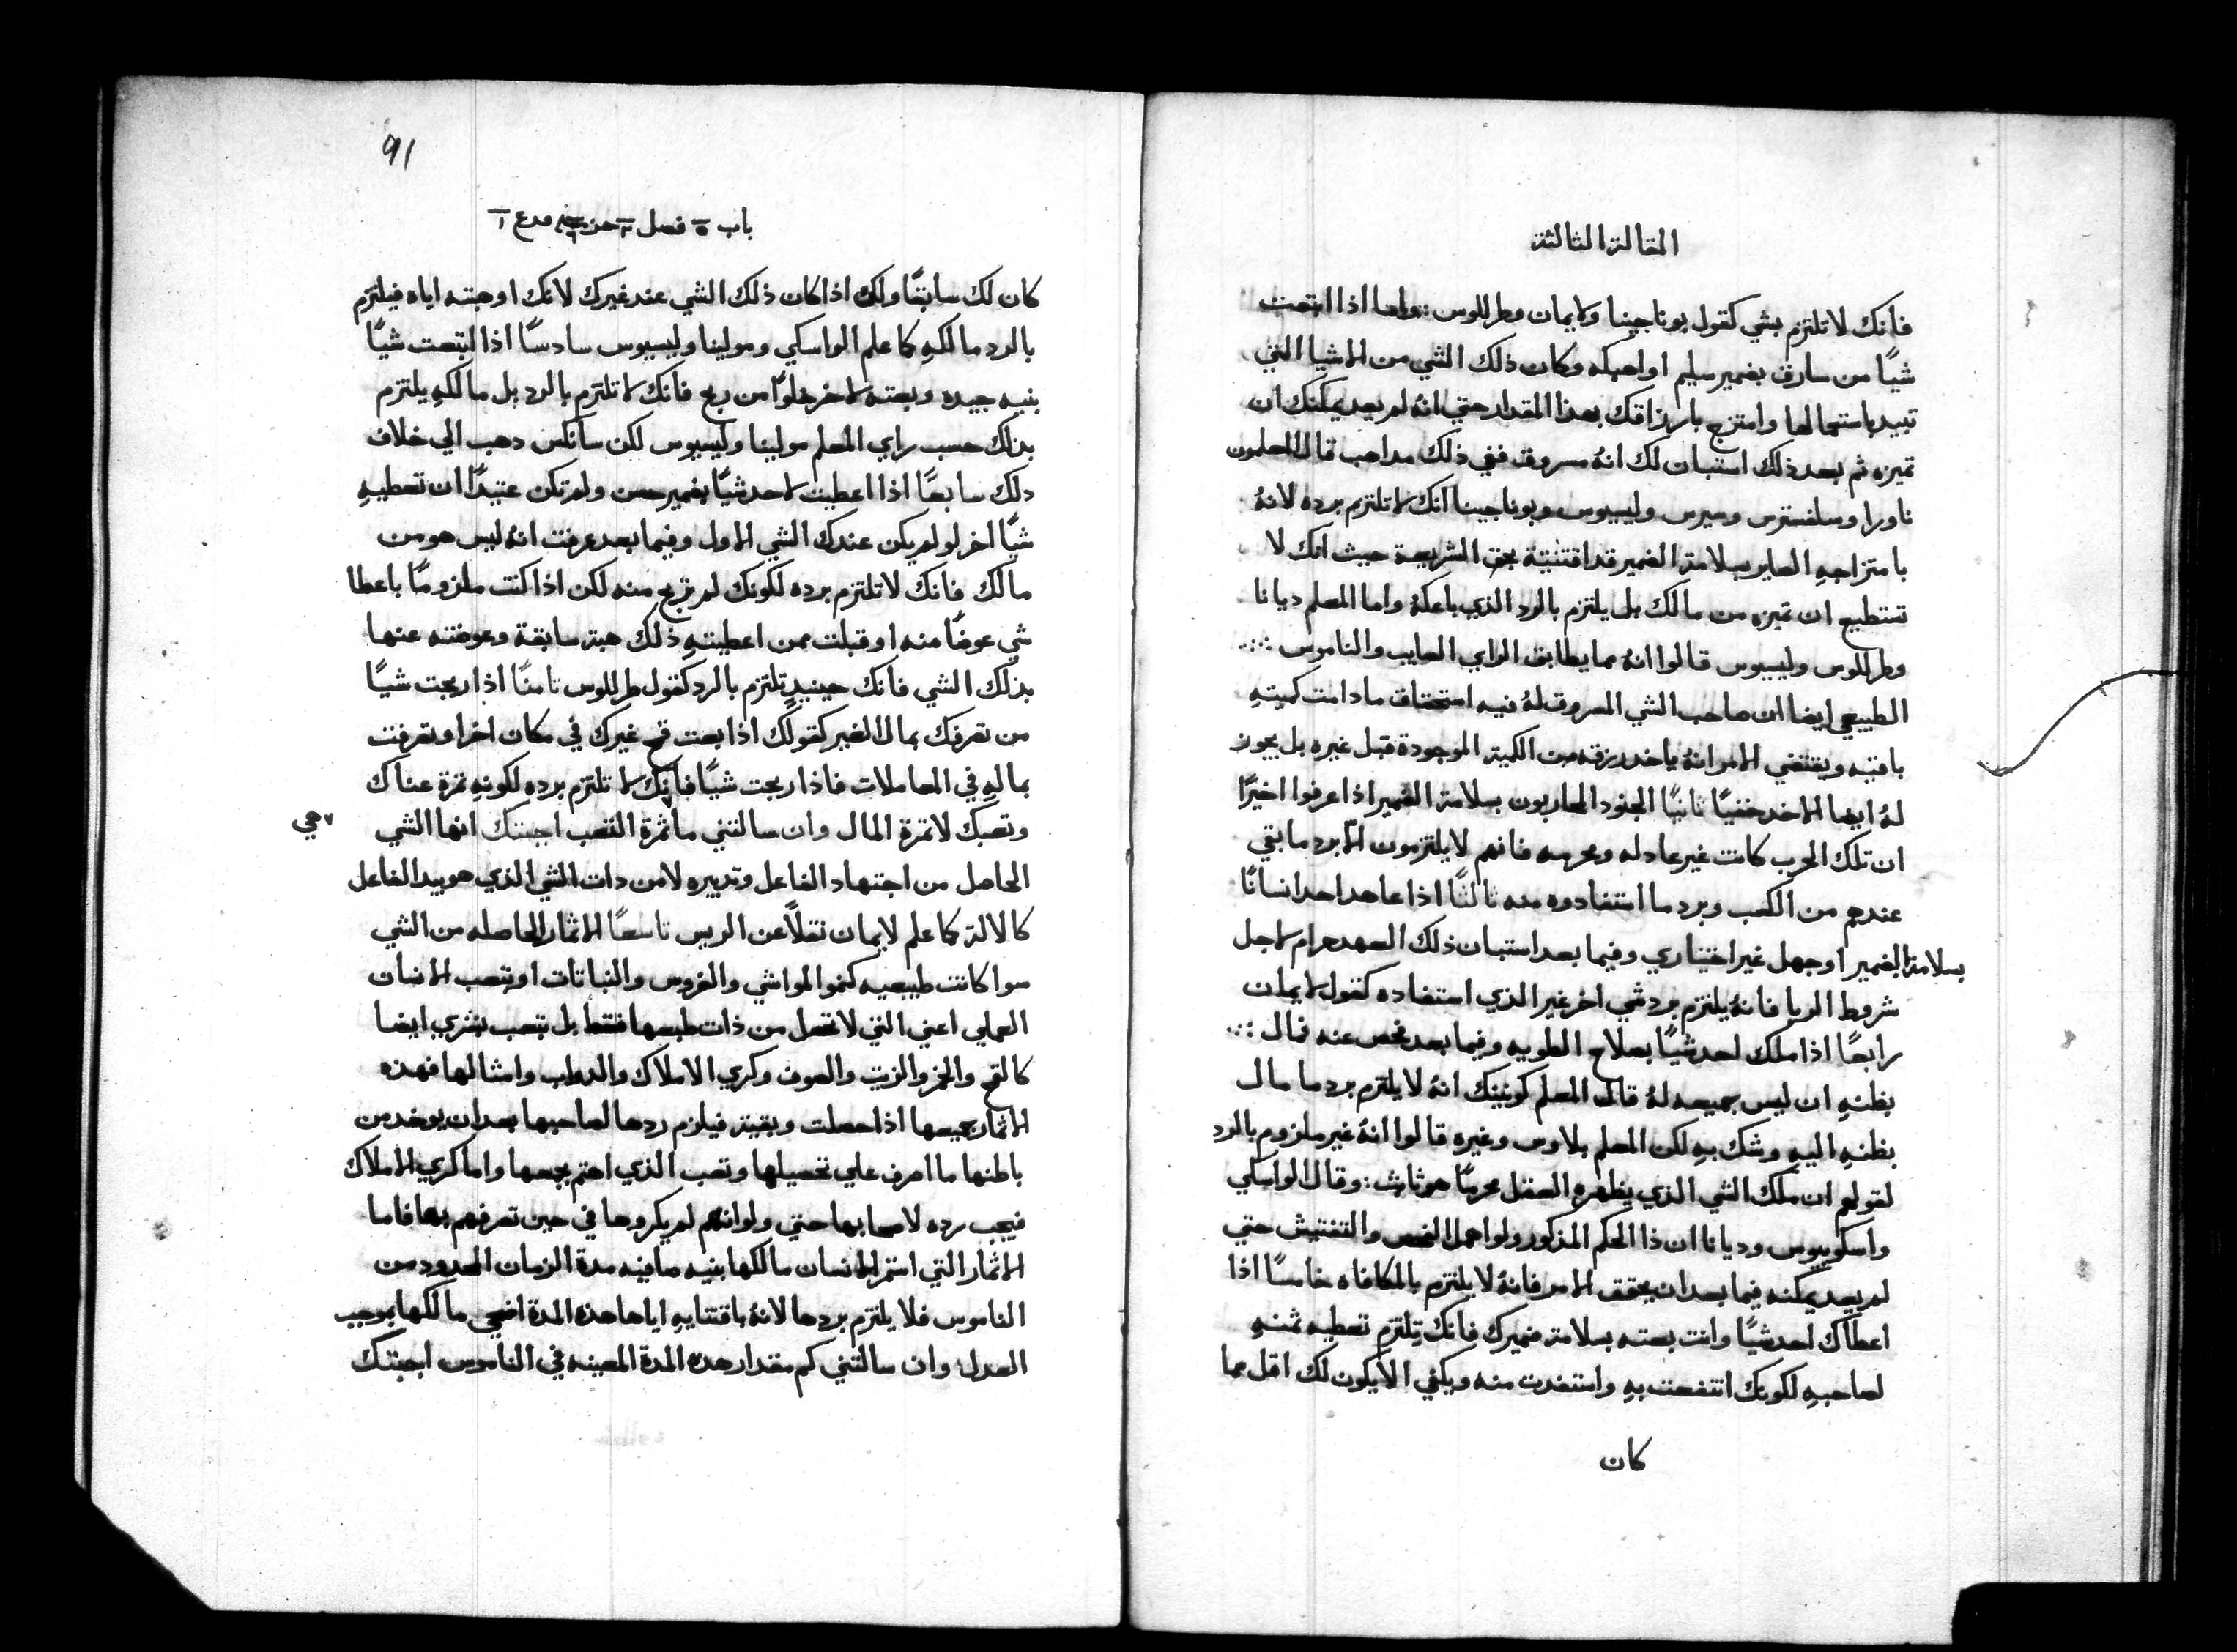 المقالة الثالثة
فانك لا تلتزم بشي كقول بوناجينا ولايمان وطرللوس :: واما اذا ابتعت
شياً من سارق بضمير سليم او احبكه وكان ذلك الشي من الاشيا التي
تبيد باستعمالها وامتزج بارزاقك بهذا المقدار حتي انهُ لم يعد يمكنك ان
تميزه ثم بعد ذلك استبان لك انهُ مسروق ففي ذلك مداهب قال المعلمون
ناورا وسلفسترس وسيرس وليسيوس وبوناجينا انك لا تلتزم برده لانهُ
بامتزاجهِ الصاير بسلامة الضمير قد اقتنيتهُ بحق الشريعة حيث انك لا
تستطيع ان تميزه من مالك بل يلتزم بالرد الذي باعكهُ واما المعلم ديانا
وطرللوس وليسيوس قالوا انهُ مما يطابق الراي الصايب والناموس ::
الطبيعي ايضا ان صاحب الشي المسروق لهُ فيه استحقاق ما دامت كميتهِ
باقيه ويقتضي الامر انهُ ياخد رزقه من الكمية الموجودة قبل غيره بل يجوز
لهُ ايضا الاخد خفيًا ثانيًا الجنود المحاربون بسلامة الضمير اذا عرفوا اخيرًا
ان تلك الحرب كانت غير عادله ومحرمه فانهم لا يلتزمون الا برد ما بقي
عندهم من الكسب وبرد ما استفادوه منه ثالثًا اذا عاهد احد انسانًا
بسلامة الضمير او جهل غير اختياري وفيما بعد استبان ذلك العهد حرام لاجل
شروط الربا فانهُ يلتزم برد شي اخر غير الذي استفاده كقول لايمان
رابعًا اذا ملك احد شيًا بصلاح الطويه وفيما بعد فحص عنه فمال ::
بظنهِ ان ليس جميعه لهُ قال المعلم كونينك انهُ لا يلتزم برد ما مال
بظنهِ اليهِ وشك بهِ لكن المعلم بلاوس وغيره قالوا انهُ غير ملزوم بالرد
لقولهم ان ملك الشي الذي يظهره العقل محرمًا هو ثابت : وقال الواسكي
واسكوبيوس وديانا ان ذا الحكم المذكور ولو اهمل الفحص والتفتيش حتي
لم يعد يمكنه فيما بعد ان يحقق الامر فانهُ لا يلتزم بالمكافاه خامسًا اذا
اعطاك احد شيًا وانت بعته بسلامة ضميرك فانك تلتزم تعطيه ثمنهِ
لصاحبهِ لكونك انتفعت بهِ واستفدت منه ويكفي الا يكون لك اقل مما
كان
91
باب ٥ فصل ٣ من مدع ١
كان لك سابقًا ولك اذا كان ذلك الشي عند غيرك لانك اوهبته اياه فيلتزم
بالرد مالكهِ كما علم الواسكي ومولينا وليسيوس سادسًا اذا ابتعت شيًا
بنيه جيده وبعته لاخر خلوًا من ربح فانك لا تلتزم بالرد بل مالكهِ يلتزم
بذلك حسب راي المعلم مولينا وليسيوس لكن سانكس دهب الي خلاف
دلك سابعًا اذا اعطيت لاحد شيًا بضمير حسن ولم تكن عتيدًا ان تعطيهِ
شيًا اخر لو لم يكن عندك الشي الاول وفيما بعد عرفت انهُ ليس هو من
مالك فانك لا تلتزم برده لكونك لم تربح منه لكن اذا كنت ملزومًا باعطا
شي عوضًا منه او قبلت ممن اعطيتهِ ذلك هبة سابقة وعوضته عنها
بذلك الشي فانك حينيدٍ تلتزم بالرد كقول طرللوس ثامنًا اذا ربحت شيًا
من تصرفك بمال الغير كقولك اذا بعت قمح غيرك في مكان اخر او تصرفت
بمالهِ في المعاملات فاذا ربحت شيًا فانك لا تلتزم برده لكونهِ ثمرة عناك
وتعبك لا ثمرة المال وان سالتني ما ثمرة التعب اجبتك انها الشي
هي
الحاصل من اجتهاد الفاعل وتدبيره لا من دات الشي الذي هو بيد الفاعل
كالالة كما علم لايمان نقلًا عن الريس تاسعًا الاثمار الحاصله من الشي
سوا كانت طبيعيه كنمو المواشي والغروس والنباتات او بتعب الانسان
العملي اعني التي لا تحصل من ذات طبعها فقط بل بتعب بشري ايضا
كالقمح والخمر والزيت والصوف وكري الاملاك والدواب وامثالها فهذه
الاثمار جميعها اذا حصلت وبقيت فيلزم ردها لصاحبها بعد ان يوخد من
باطنها ما اصرف علي تحصيلها وتعب الذي اهتم بجمعها واما كري الاملاك
فيجب رده لاصحابها حتي ولو انهم لم يكروها في حين تصرفهم بها فاما
الاثمار التي استمر الانسان مالكها بنيه صافيه مدة الزمان المحدود من
الناموس فلا يلتزم بردها لانهُ باقتنايهِ اياها هذه المدة اضحي مالكها بموجب
العدل وان سالتني كم مقدار هده المدة المعينه في الناموس اجبتك